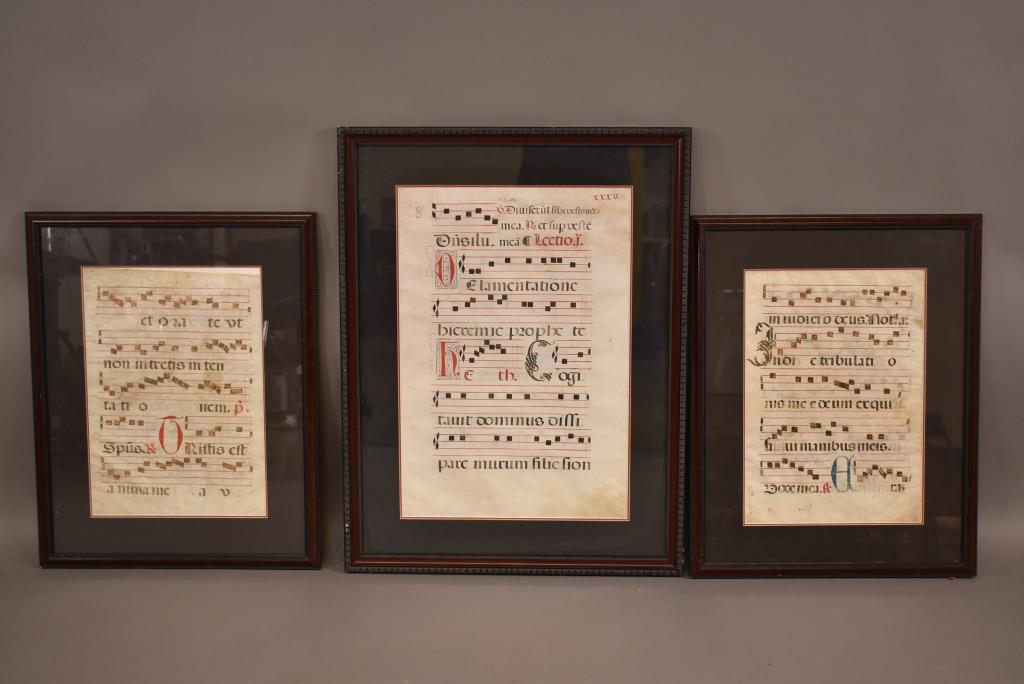 et Ora te vt
non intretis in ten
tati o nem. p̄.
Spūs. ℟ Tristis est
anima me a v
8 xxxii
℣ Diuiserūt sibi vestimēta
mea. ℟ et sup veste
Dn̄silu. meā ¶ Lectio. j.
De lamentatione
hieremie prophe te
h E th. Cogi
tauit dominus dissi
pare murum filie sion
in iudici o deus. Not
In di e tribulati o
nis me e deum exqui
si ui manibus meis.
℟. A